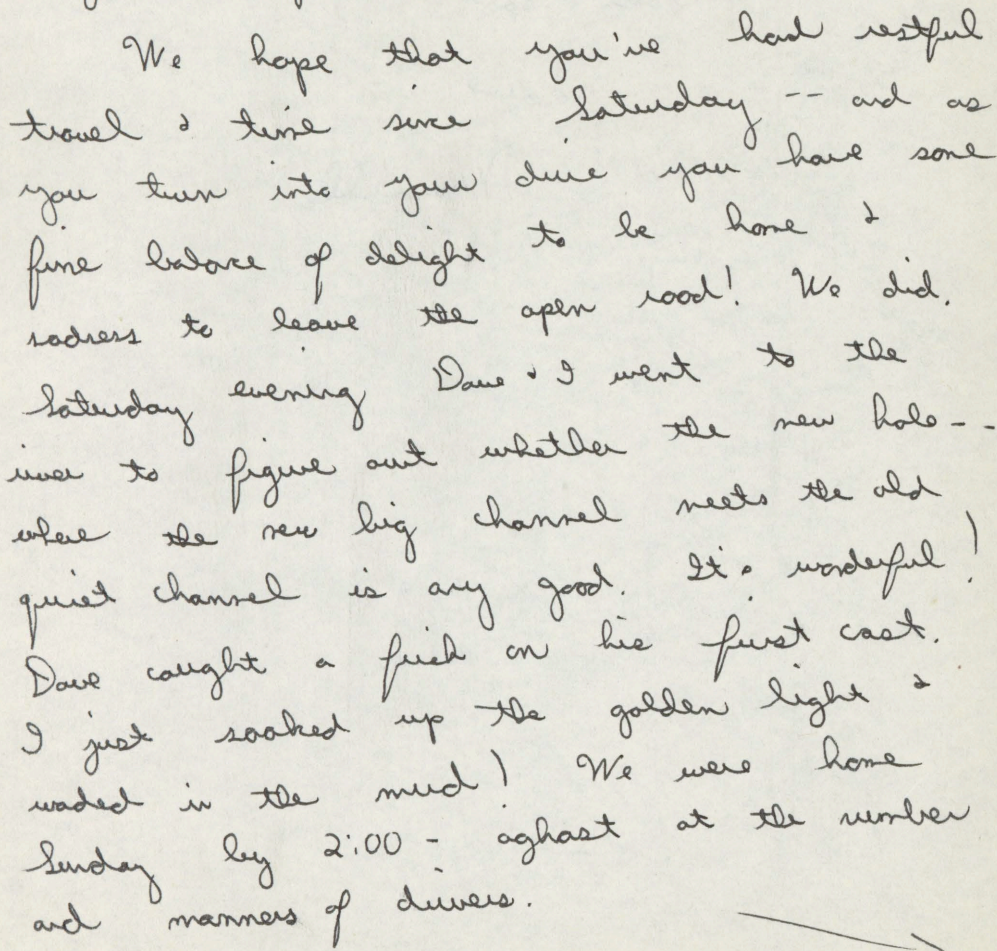 We hope that you've had restful
travel & time since Saturday -- and as
you turn into your drive you have some
fine balance of delight to be home &
sadness to leave the open road! We did.
Saturday evening Dave & I went to the
river to figure out whether the new hole --
where the new big channel meets the old
quiet channel is any good. It's wonderful!
Dave caught a fish on his first cast.
I just soaked up the golden light &
waded in the mud! We were home
Sunday by 2:00 - aghast at the number
and manners of drivers.